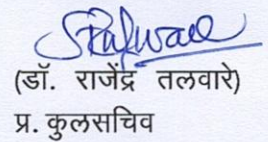 (डॉ. राजेंद्र तलवारे)
प्र. कुलसचिव